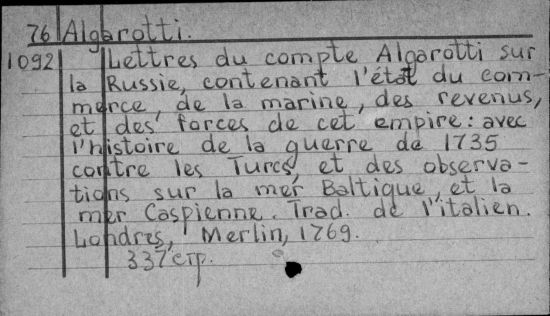 76 Algarotti.
1092 Lettres du compte Algarotti sur
la Russie, contenant l'état du com-
merce, de la marine, des revenus,
et des forces de cet empire: avec
l'histoire de la guerre de 1735
contre les Turcs, et des observa-
tions sur la mer Baltique, et la
mer Caspienne. Trad. de l'italien.
Londres, Merlin, 1769.
337 стр.